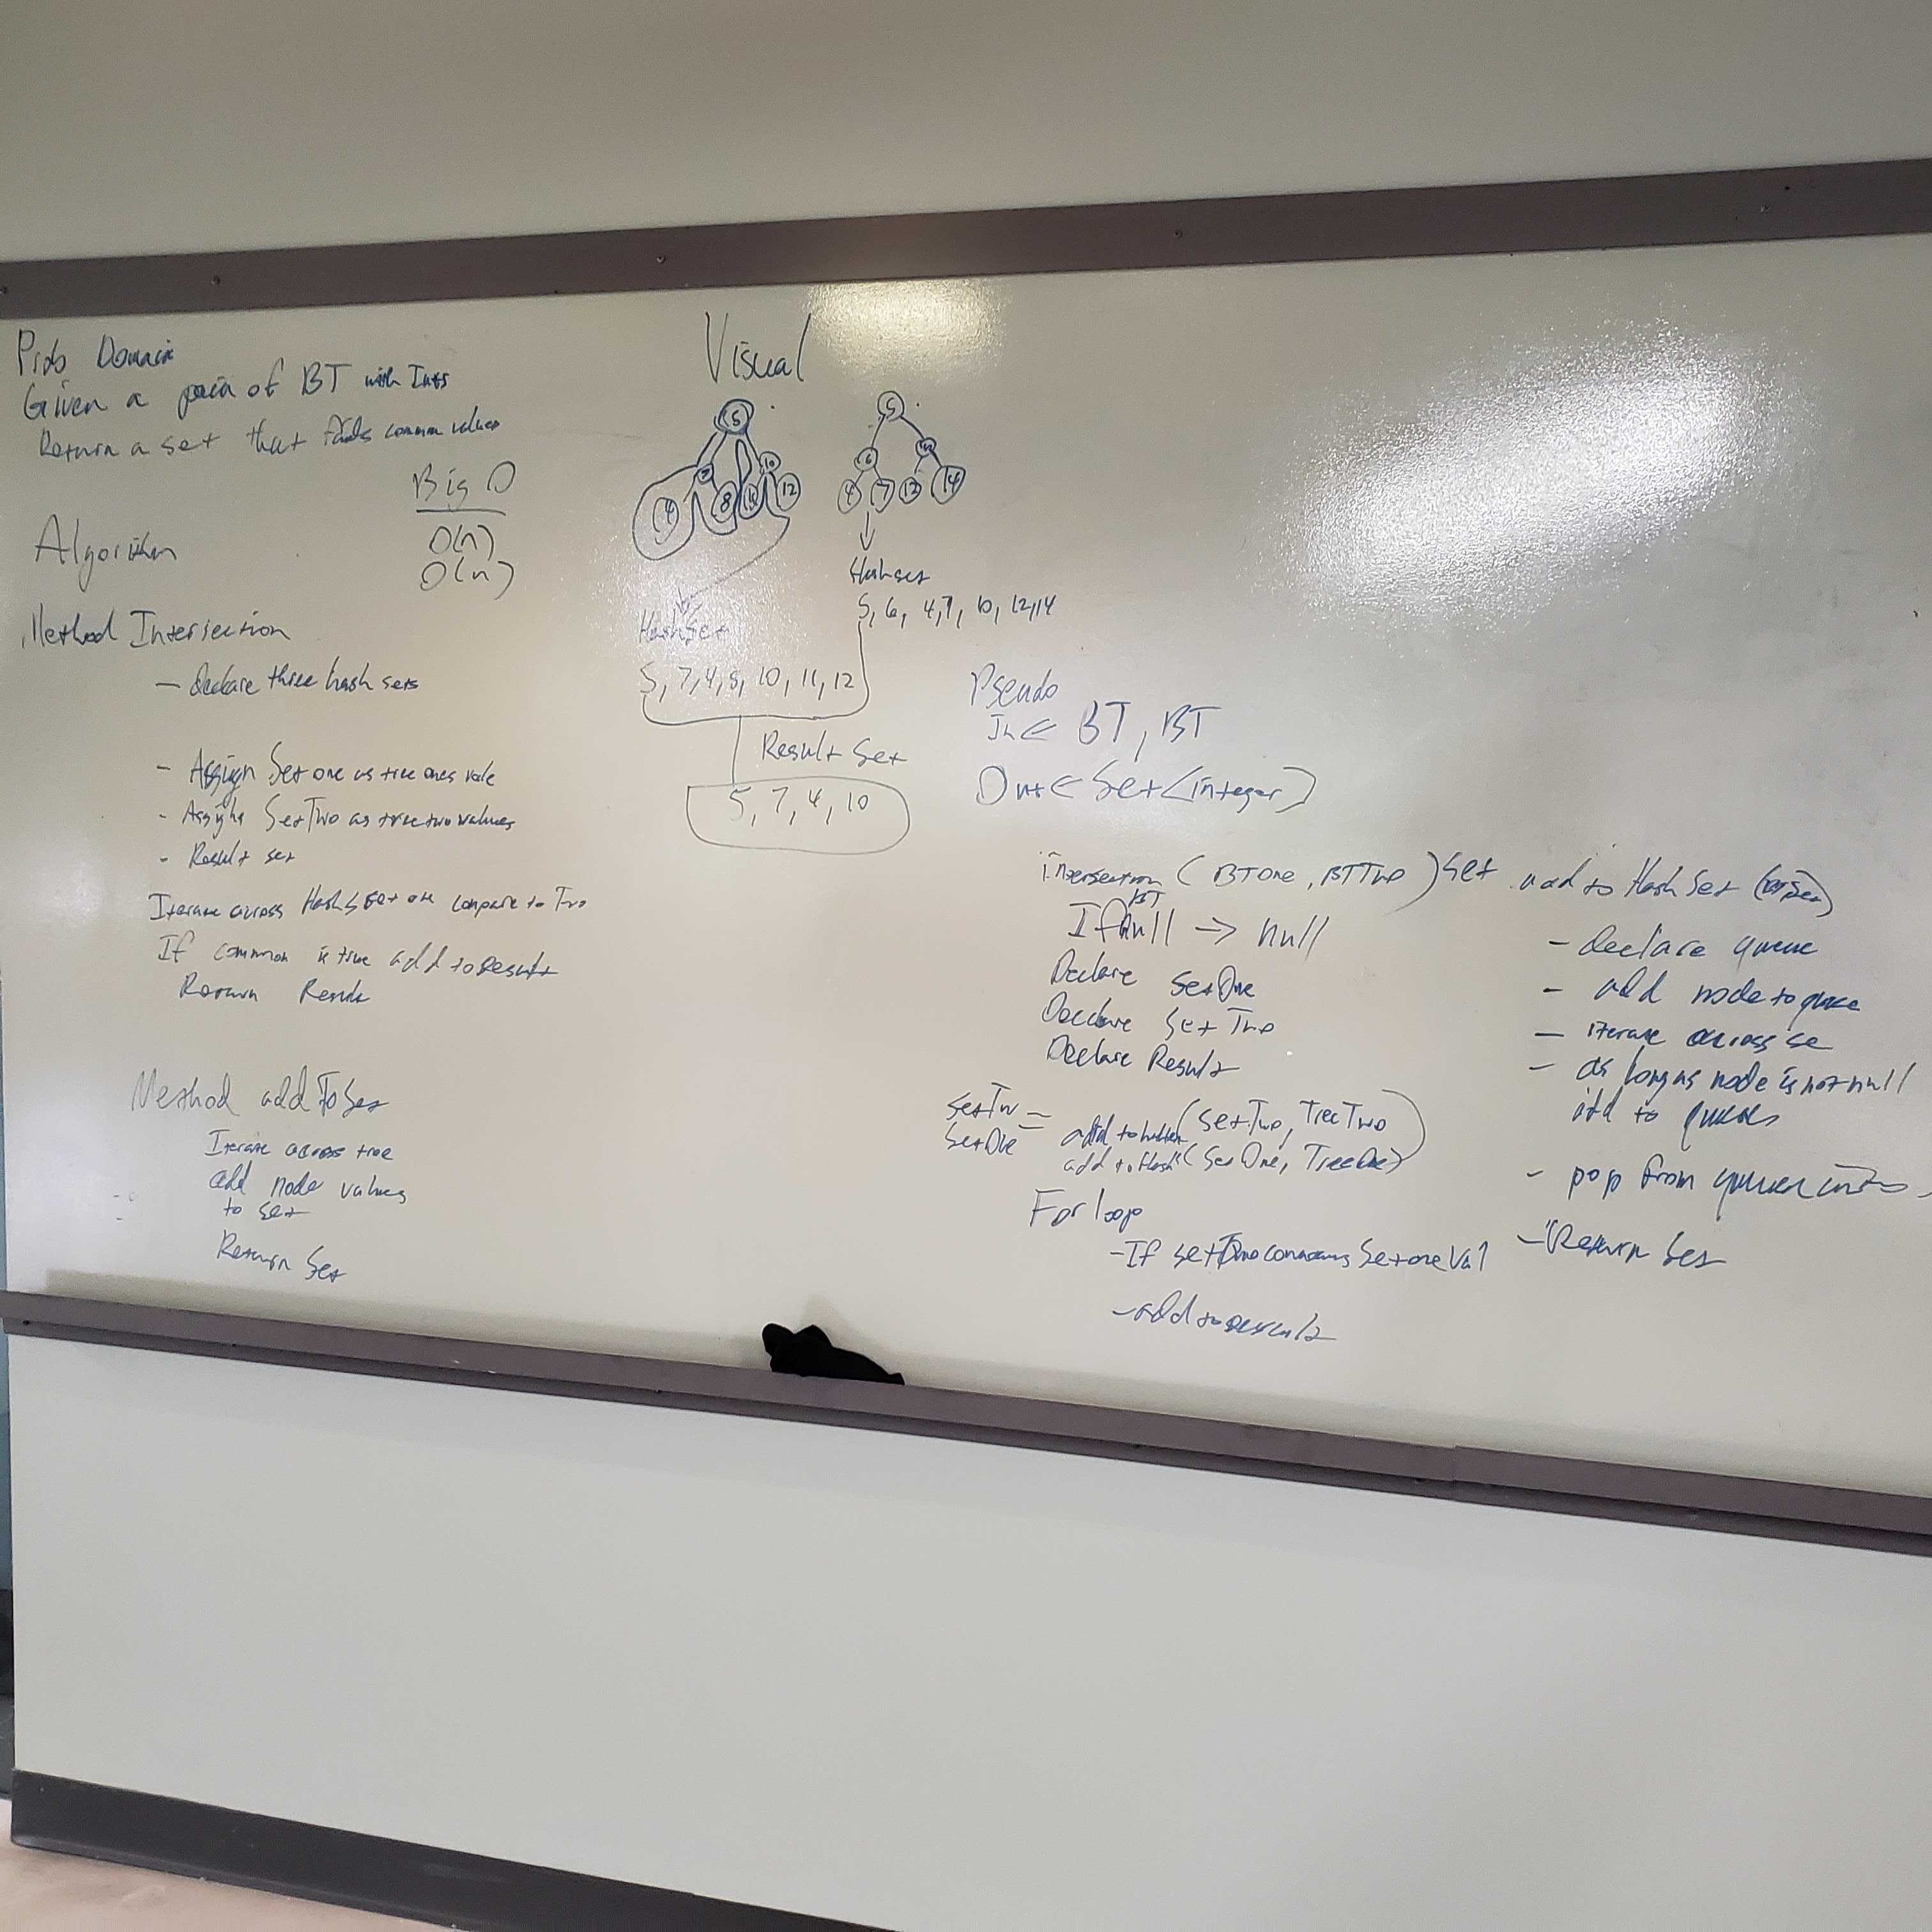 Prob Domain
Given a pair of BT with Ints
Return a set that finds common values
Big O
O(n)
O(n)
Algorithm
Method Intersection
- Declare three hash sets
- Assign Set one as tree ones vale
- Assign SetTwo as tree two values
- Result set
Iterate across HashSet one compare to Two
If common is true add to result
Return Result
Method addToSet
Iterate across tree
add node values
to set
Return Set
Visual
5
7 10
4 8 11 12
5
6 10
4 7 12 14
Hashset
5, 6, 4, 7, 10, 12, 14
HashSet
5, 7, 4, 8, 10, 11, 12
Result Set
5, 7, 4, 10
Pseudo
In < BT, BT
Out < Set <integer>
intersection (BTOne, BTTwo) Set
BT
If null -> null
Declare SetOne
Declare Set Two
Declare Result
SetTw = add to (SetTwo, TreeTwo)
SetOne add to Hash (SetOne, TreeOne)
For loop
- If setTwo contains Set one Val
- add to result
add to Hash Set
- declare queue
- add node to queue
- iterate across
- as long as node is not null
add to queue
- pop from queue into
- Return Set